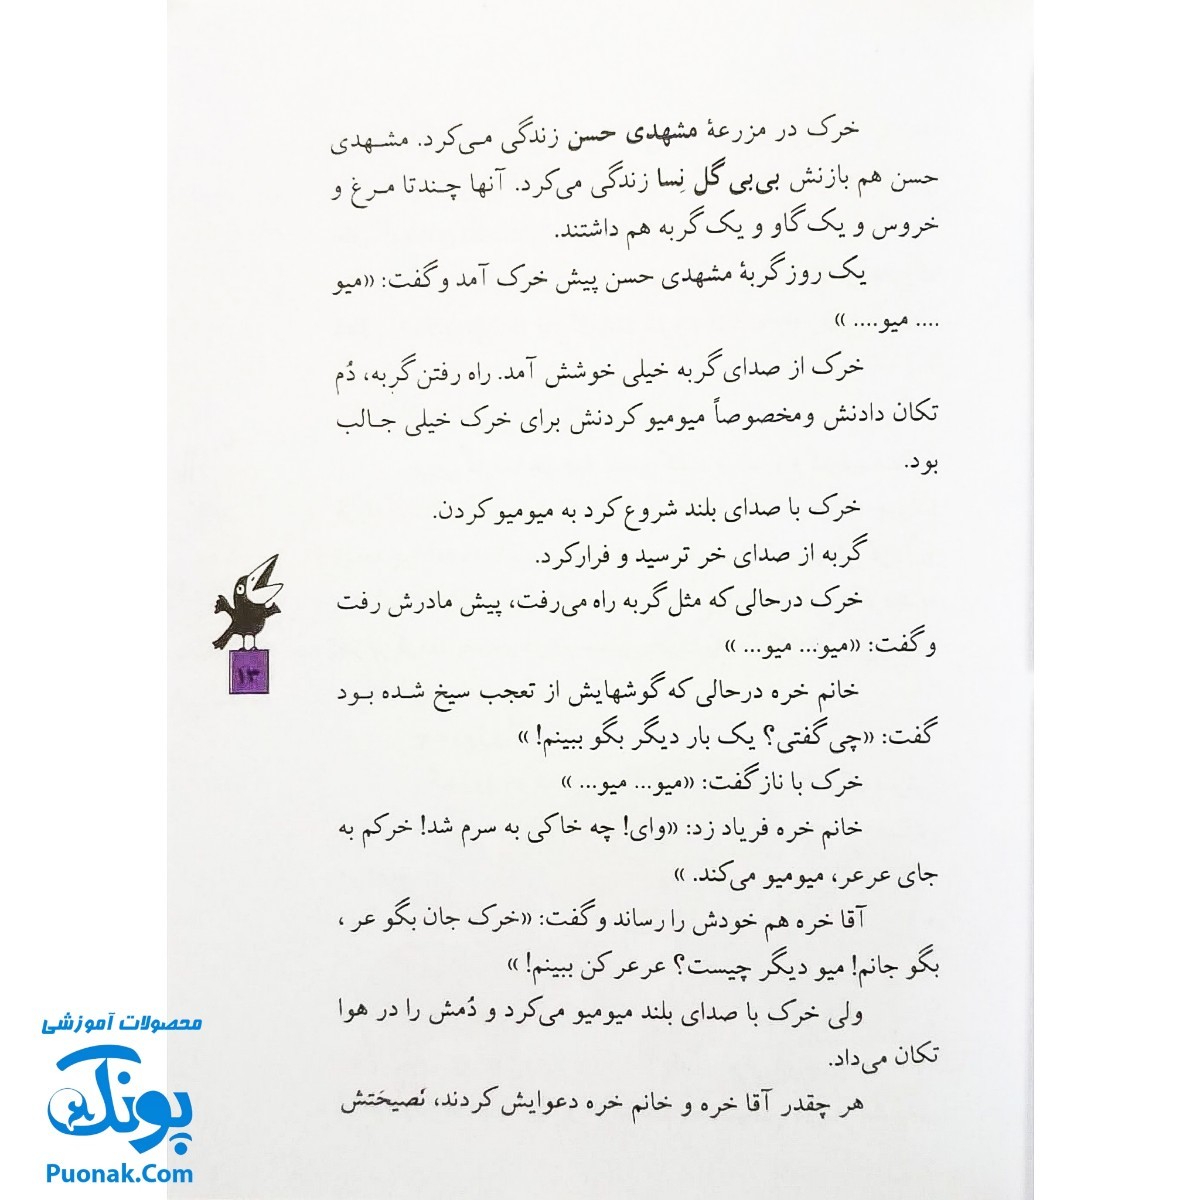 خرک در مزرعهٔ مشهدی حسن زندگی می‌کرد. مشهدی
حسن هم بازنش بی‌بی گل نِسا زندگی می‌کرد. آنها چندتا مرغ و
خروس و یک گاو و یک گربه هم داشتند.
یک روز گربهٔ مشهدی حسن پیش خرک آمد و گفت: «میو
.... میو.... »
خرک از صدای گربه خیلی خوشش آمد. راه رفتن گربه، دُم
تکان دادنش ومخصوصاً میومیو کردنش برای خرک خیلی جالب
بود.
خرک با صدای بلند شروع کرد به میومیو کردن.
گربه از صدای خر ترسید و فرارکرد.
خرک درحالی که مثل گربه راه می‌رفت، پیش مادرش رفت
و گفت: «میو... میو... »
خانم خره درحالی که گوشهایش از تعجب سیخ شده بود
گفت: «چی گفتی؟ یک بار دیگر بگو ببینم! »
خرک با ناز گفت: «میو... میو... »
خانم خره فریاد زد: «وای! چه خاکی به سرم شد! خرکم به
جای عرعر، میومیو می‌کند. »
آقا خره هم خودش را رساند و گفت: «خرک جان بگو عر ،
بگو جانم! میو دیگر چیست؟ عرعر کن ببینم! »
ولی خرک با صدای بلند میومیو می‌کرد و دُمش را در هوا
تکان می‌داد.
هر چقدر آقا خره و خانم خره دعوایش کردند، نَصیحَتش
۱۳
محصولات آموزشی
پونک
Puonak.Com